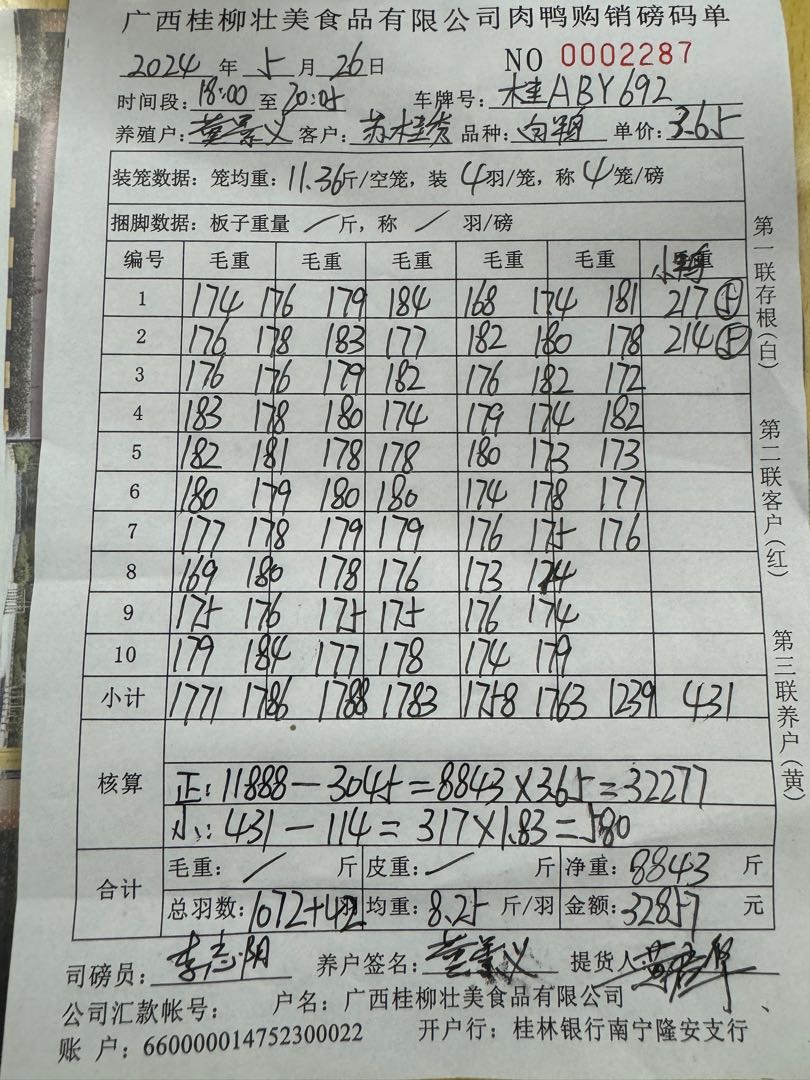 广西桂柳壮美食品有限公司肉鸭购销磅码单
2024 年 5 月 26 日 NO 0002287
时间段: 18:00 至 20:05 车牌号: 桂ABY692
养殖户: 黄景义 客户: 苏桂贵 品种: 白鸭 单价: 3.65
装笼数据: 笼均重: 11.36 斤/空笼, 装 4 羽/笼, 称 4 笼/磅
捆脚数据: 板子重量 / 斤, 称 / 羽/磅
编号 毛重 毛重 毛重 毛重 毛重 小鸭 重
1 174 176 179 184 168 174 181 217 ⑤
2 176 178 183 177 182 180 178 214 ⑤
3 176 176 179 182 176 182 172
4 183 178 180 174 179 174 182
5 182 181 178 178 180 173 173
6 180 179 180 180 174 178 177
7 177 178 179 179 176 175 176
8 169 180 178 176 173 174
9 175 176 175 175 176 174
10 179 184 177 178 174 179
小计 1771 1786 1788 1783 1758 1763 1239 431
核算
正: 11888 - 3045 = 8843 × 3.65 = 32277
小: 431 - 114 = 317 × 1.83 = 580
合计
毛重: / 斤 皮重: / 斤 净重: 8843 斤
总羽数: 1072+42 羽 均重: 8.25 斤/羽 金额: 32857 元
司磅员: 李志阴 养户签名: 黄景义 提货人:
公司汇款帐号: 户名: 广西桂柳壮美食品有限公司
账 户: 660000014752300022 开户行: 桂林银行南宁隆安支行
第一联存根(白)
第二联客户(红)
第三联养户(黄)